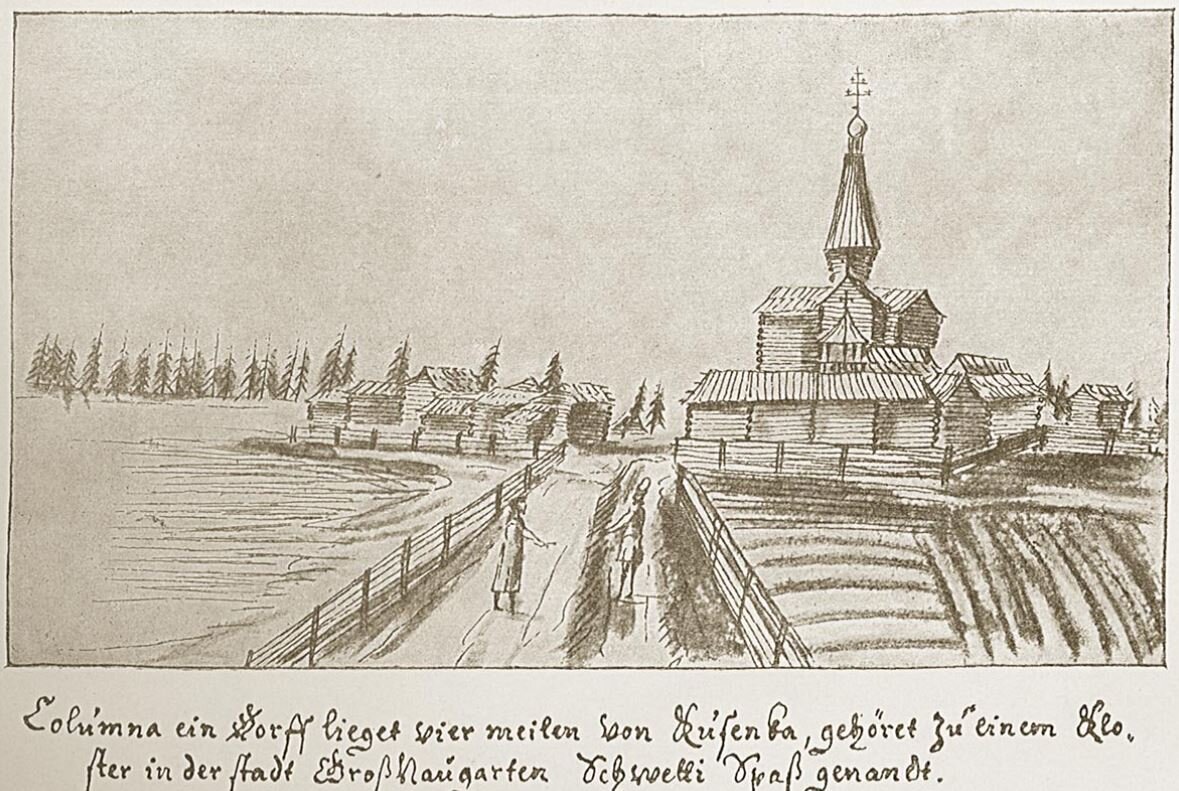 Columna ein Dorff lieget vier meilen von Rusenka, gehöret zu einem Klo-
ster in der stadt GroßNaugarten Schwetti Spaß genandt.